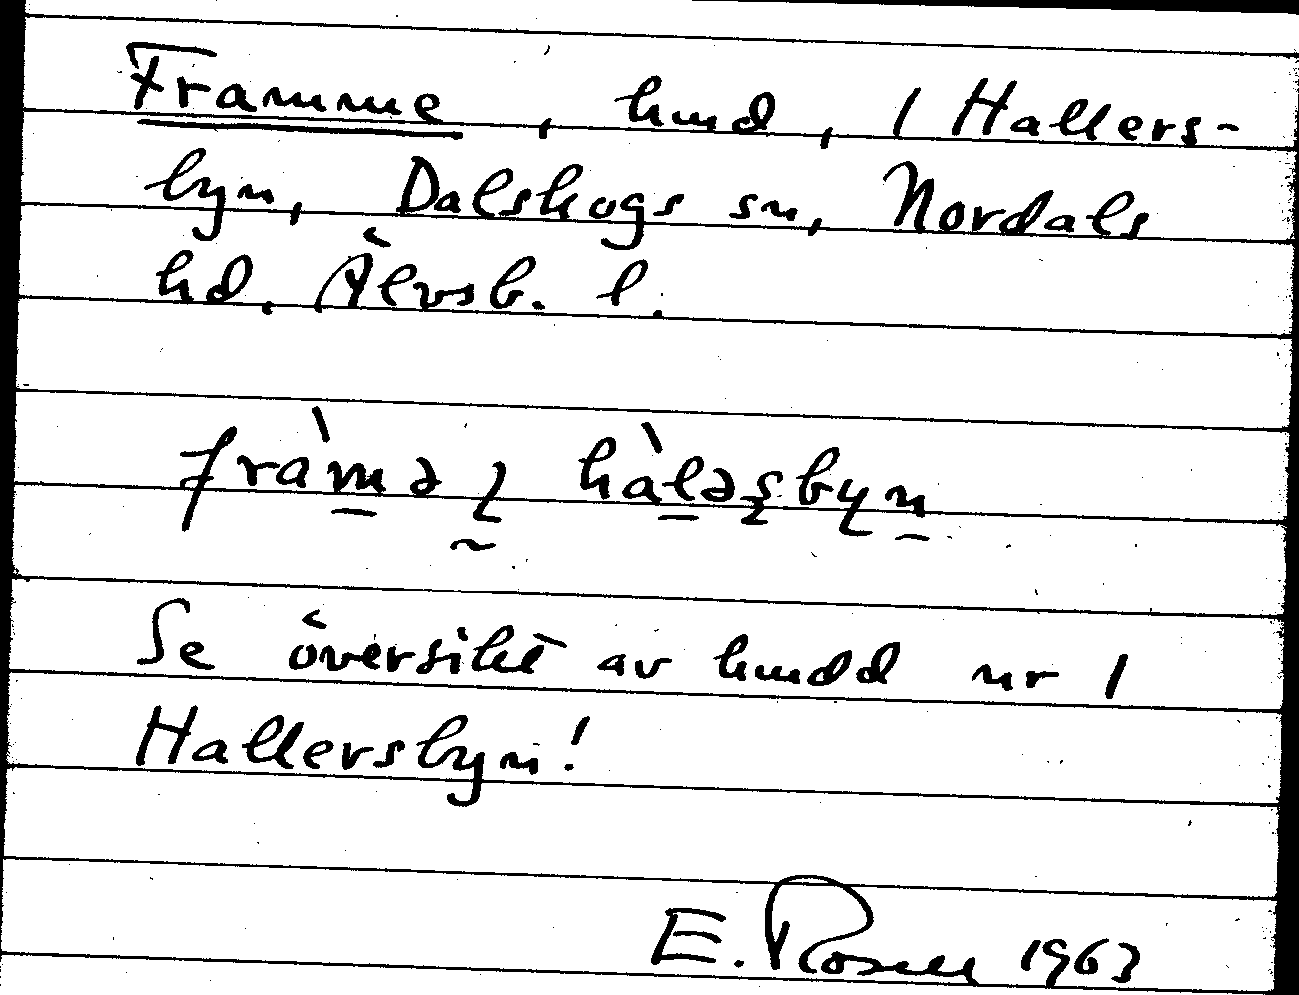 Framme, hmd, 1 Hallers-
byn, Dalskogs sn, Nordals
hd. Älvsb. l.
fràmə ı̨ hàləşbyn
Se översikt av hmdd nr 1
Hallersbyn!
E. Rosell 1963